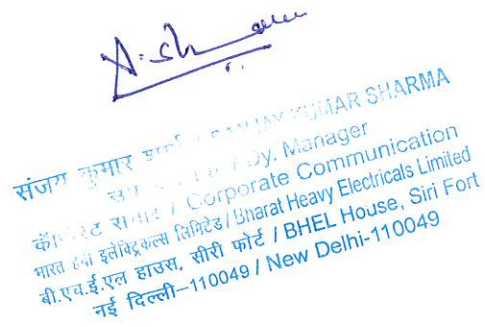 संजय कुमार शर्मा / SANJAY KUMAR SHARMA
/ Dy. Manager
/ Corporate Communication
भारत हेवी इलेक्ट्रिकल्स लिमिटेड / Bharat Heavy Electricals Limited
बी.एच.ई.एल हाउस, सीरी फोर्ट / BHEL House, Siri Fort
नई दिल्ली–110049 / New Delhi-110049